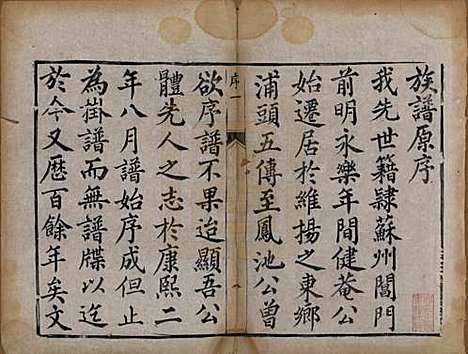 族譜原序
我先世籍隸蘇州閶門
前明永樂年間健菴公
始遷居於維揚之東鄉
浦頭五傳至鳳池公曾
序一
欲序譜不果迨顯吾公
體先人之志於康熙二
年八月譜始序成但止
為掛譜而無譜牒以迄
於今又歷百餘年矣文